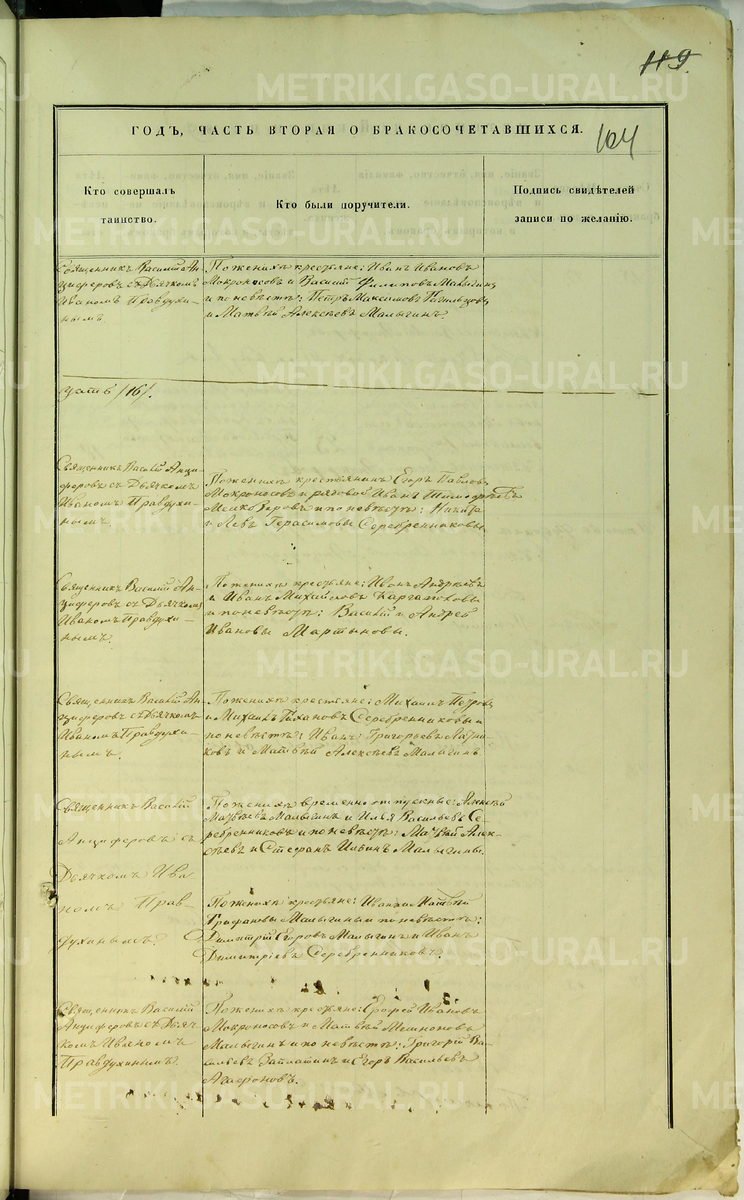 119.
ГОДЪ, ЧАСТЬ ВТОРАЯ О БРАКОСОЧЕТАВШИХСЯ.
104
Кто совершалъ
таинство.
Кто были поручители.
Подпись свидѣтелей
записи по желанію.
Священникъ Василій Ан-
циферовъ съ Дьячкомъ
Иваномъ Правдухи-
нымъ.
По женихѣ крестьяне: Иванъ Ивановъ
Мокроносовъ и Василій Филиповъ Малыгинъ
и по невѣстѣ: Петръ Максимовъ
и Матвѣй Алексѣевъ Малыгинъ.
цать /16/.
Священникъ Василій Анци-
феровъ съ Дьячкомъ
Иваномъ Правдухи-
нымъ.
По женихѣ крестьянинъ Егоръ Павловъ
Мокроносовъ и рядовой Иванъ
и по невѣстѣ: Никита
и Левъ Герасимовы Серебренниковы.
Священникъ Василій Ан-
циферовъ съ Дьячкомъ
Иваномъ Правдухи-
нымъ.
По женихѣ крестьяне: Иванъ Андреевъ
и Иванъ Михайловъ Каргаполовы
и по невѣстѣ: Василій и Андрей
Ивановы Мартыновы.
Священникъ Василій Ан-
циферовъ съ Дьячкомъ
Иваномъ Правдухи-
нымъ.
По женихѣ крестьяне: Михаилъ Петровъ
и Михаилъ Серебренниковы и
по невѣстѣ: Иванъ Григорьевъ
и Матвѣй Алексѣевъ Малыгинъ.
Священникъ Василій
Анциферовъ съ
Дьячкомъ Ива
номъ Прав
духинымъ.
По женихѣ временно отпускные: Алексѣй
Матвѣевъ Малыгинъ и Илья Васильевъ Се-
ребренниковъ и по невѣстѣ: Матвѣй Алек-
сѣевъ и Стефанъ Ильинъ Малыгины.
По женихѣ крестьяне: Иванъ и Матвѣй
Малыгины и по невѣстѣ:
Димитрій Егоровъ Малыгинъ и Иванъ
Димитріевъ Серебренниковъ.
Священникъ Василій
Анциферовъ съ Дьяч
комъ Иваномъ
Правдухинымъ.
По женихѣ крестьяне: Ерофей Ивановъ
Мокроносовъ и Матвѣй
Малыгинъ и по невѣстѣ: Григорій Ва-
сильевъ Заплатинъ и Егоръ Васильевъ
Агафоновъ.
METRIKI.GASO-URAL.RU